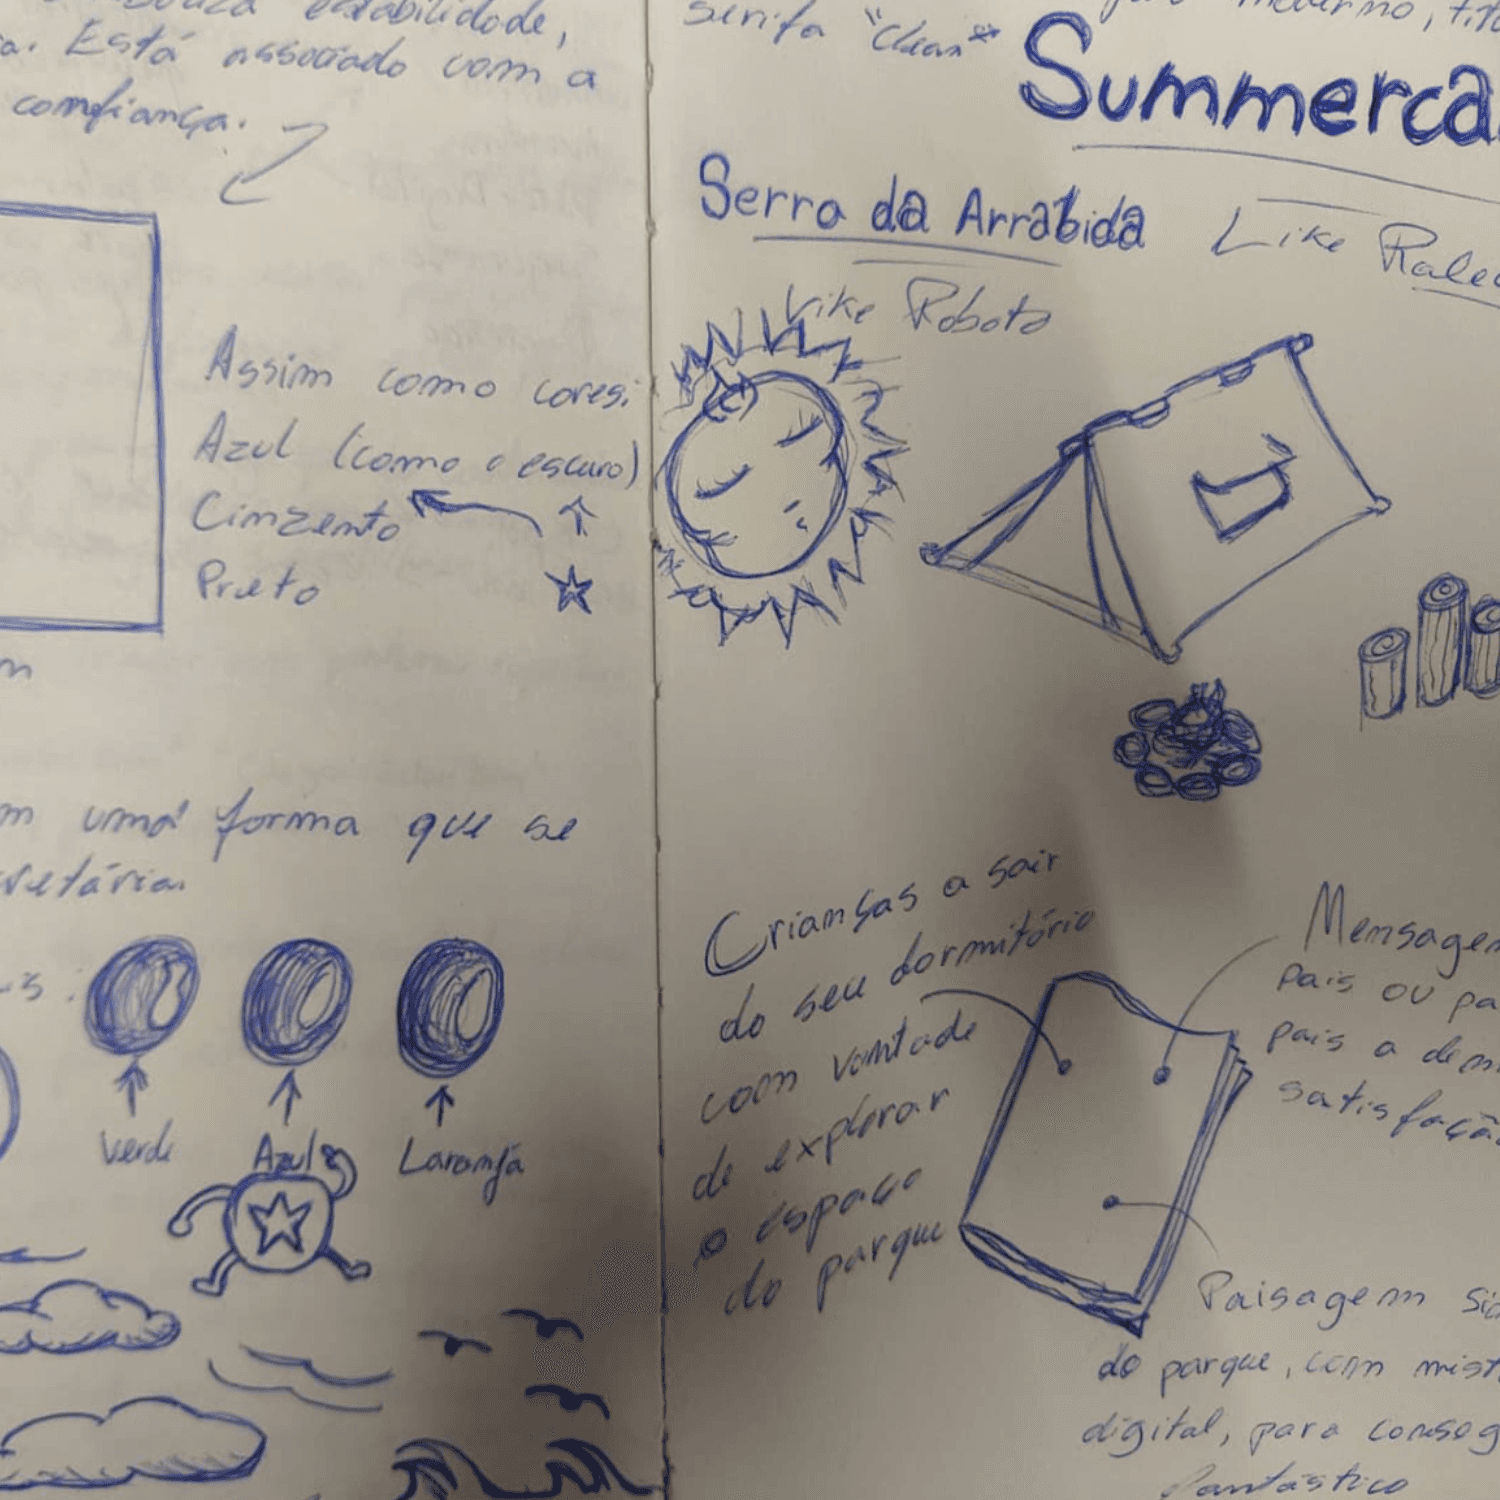 estabilidade,
Está associado com a
comfiança.
Assim como cores:
Azul (como o escuro)
Cimzemto
Preto
m
m uma forma que se
retária.
is:
Verde
Azul
Laramja
serifa "Clean"
Summerca
Serra da Arrabida
Like Rale
Like Roboto
Criamças a sair
do seu dormitório
com vomtade
de explorar
o espaço
do parque
Mensagem
pais ou pa
pais a dem
satisfação
Paisagem
do parque, com mist
digital, para conseg
fantástico